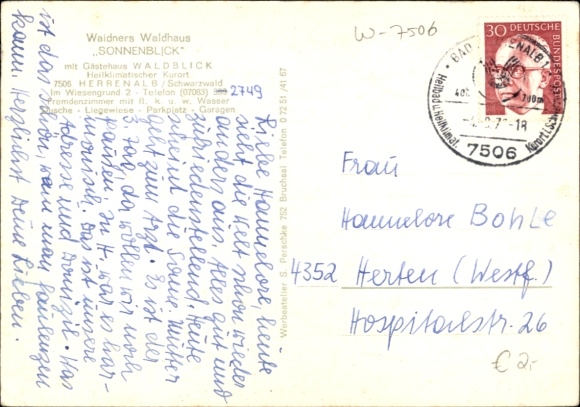 Waidners Waldhaus
„SONNENBLICK"
mit Gästehaus WALDBLICK
Heilklimatischer Kurort
7506 HERRENALB/Schwarzwald
Im Wiesengrund 2 - Telefon (07083) 2749
Fremdenzimmer mit fl. k. u. w. Wasser
Dusche - Liegewiese - Parkplatz - Garagen
Werbeatelier S. Perschke 752 Bruchsal Telefon 0 72 51/41 67
Liebe Hannelore, heute
sieht die Welt schon wieder
anders aus. Alles gut und
zufriedenstellend. Heute
scheint die Sonne. Mutter
geht zum Arzt. Es ist der
3. Tag, da wollen wir noch
In H. war es har-
monisch. Das ist unsere
Adresse und Domizil. Was
ist das schön, wenn man faulenzen
kann. Herzlichst Deine Lieben.
W-7506
30
DEUTSCHE BUNDESPOST
BAD HERRENALB
Heilbad u Heilklimat.
Kurort i. Schw
700m
-18
7506
Frau
Hannelore Bohle
4352 Herten (Westf.)
Hospitalstr. 26
€ 2,-